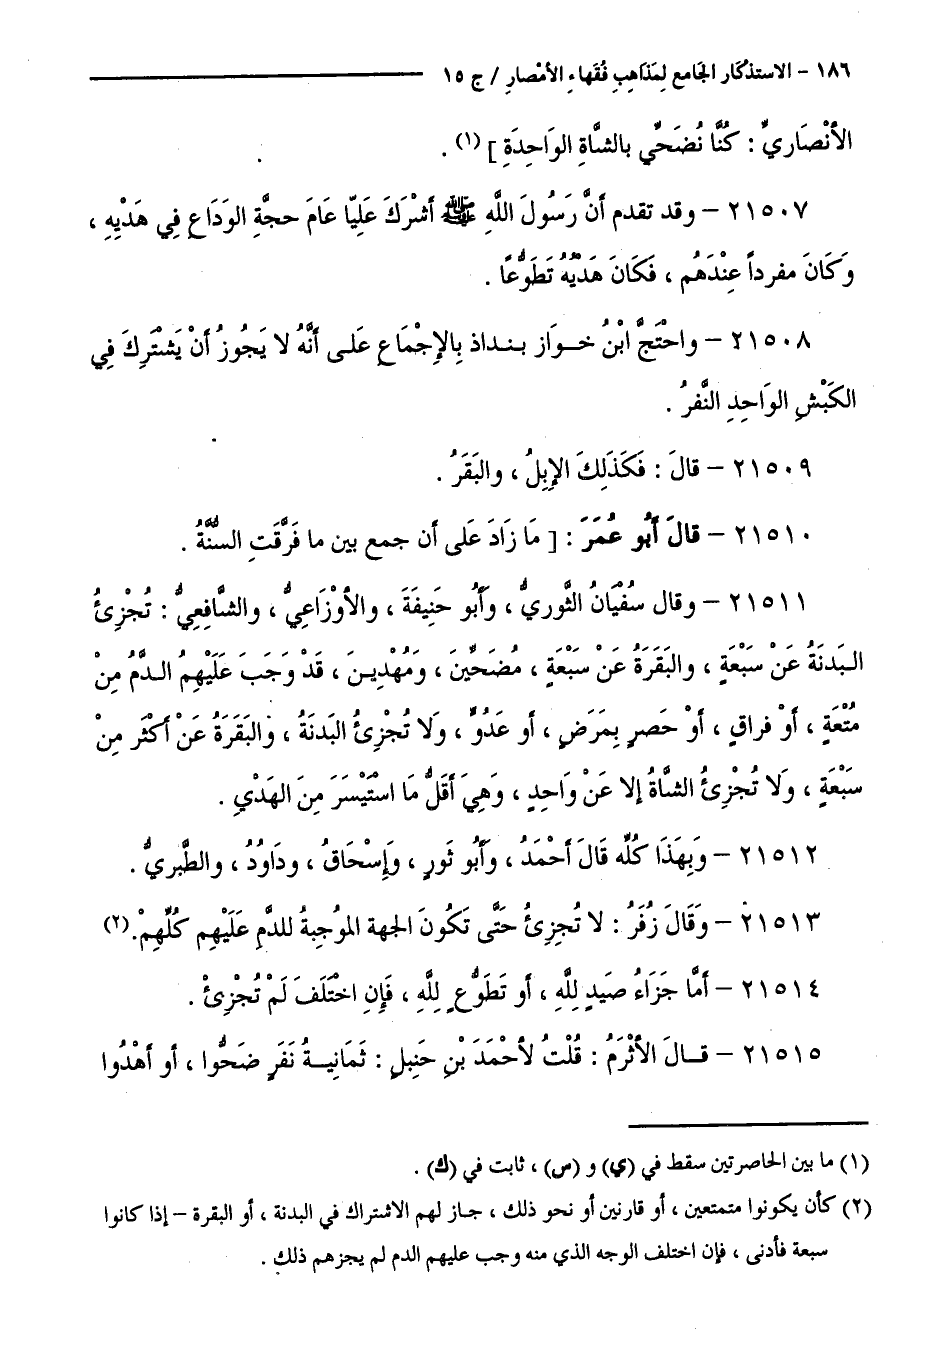 ١٨٦ - الاستذكار الجامع لِمَذَاهِبِ فُقَهاءِ الأمْصارِ / ج ١٥
الأنْصَاريِّ : كُنَّا نُضَحِّي بالشَّاةِ الوَاحِدَةِ ] (١) .
٢١٥٠٧ - وقد تقدم أنَّ رَسُولَ اللَّهِ ﷺ أشْرَكَ عَلِيّا عَامَ حجَّةِ الوَدَاعِ فِي هَدْيِهِ ،
وَكَانَ مفرداً عِنْدَهُم ، فَكَانَ هَدْيُهُ تَطَوُّعًا .
٢١٥٠٨ - واحْتَجَّ ابْنُ خوَاز بنداذ بِالإِجْمَاعِ عَلى أَنَّهُ لا يَجُوزُ أنْ يَشْتَرِكَ فِي
الكَبْشِ الوَاحِدِ النَّفَرُ .
٢١٥٠٩ - قالَ : فَكَذَلِكَ الإِبِلُ ، والبَقَرُ .
٢١٥١٠ - قالَ أَبُو عُمَرَ : [ مَا زَادَ عَلى أن جمع بين ما فَرَّقَتِ السُّنَّةُ .
٢١٥١١ - وقال سُفْيَانُ الثَّوريُّ ، وَأَبُو حَنِيفَةَ ، والأوْزَاعِيُّ ، والشَّافِعِيُّ : تُجْزِئُ
البَدنَةُ عَنْ سَبْعَةٍ ، والبَقَرَةُ عَنْ سَبْعَةٍ ، مُضَحِّينَ ، وَمُهْدِينَ ، قَدْ وَجَبَ عَلَيْهِمُ الدَّمُ مِنْ
مُتْعَةٍ ، أوْ فراقٍ ، أوْ حَصرٍ بِمَرَضٍ ، أو عَدُوٍّ ، وَلا تُجْزِئُ البَدنَةُ ، والبَقَرَةُ عَنْ أكْثَر مِنْ
سَبْعَةٍ ، وَلا تُجْزِئُ الشَّاةُ إلا عَنْ وَاحِدٍ ، وَهِيَ أقَلُّ مَا اسْتَيْسَرَ مِنَ الهَدْيِ .
٢١٥١٢ - وَبِهَذَا كُلِّه قَالَ أحْمَدُ ، وَأَبُو ثَورٍ ، وَإِسْحَاقُ ، ودَاوُدُ ، والطَّبريُّ .
٢١٥١٣ - وَقَالَ زُفَرُ : لا تُجزِئُ حَتَّى تَكُونَ الجهة الموُجبةُ للدَّمِ عَلَيْهِم كُلِّهِمْ.(٢)
٢١٥١٤ - أمَّا جَزَاءُ صَيدٍ لِلَّهِ ، أو تَطَوُّعٍ لِلَّهِ ، فَإِنِ اخْتَلَفَ لَمْ تُجْزِئْ .
٢١٥١٥ - قالَ الأَثْرَمُ : قُلْتُ لأحْمَدَ بْنِ حَنِبلٍ : ثَمَانِيةُ نَفَرٍ ضَحُّوا ، أو أهْدُوا
(١) ما بين الحاصرتين سقط في (ي) و (س) ، ثابت في (ك) .
(٢) كأن يكونوا متمتعين ، أو قارنين أو نحو ذلك ، جاز لهم الاشتراك في البدنة ، أو البقرة - إذا كانوا
سبعة فأدنى ، فإن اختلف الوجه الذي منه وجب عليهم الدم لم يجزهم ذلك .